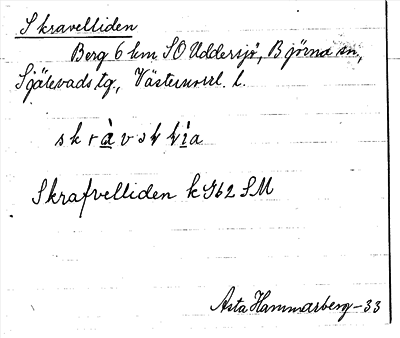 Skravelliden
Berg 6 km SO Uddersjö, Björna sn,
Själevads tg., Västernorrl. l.
Skrafvelliden k J62 SM
Asta Hammarberg -33